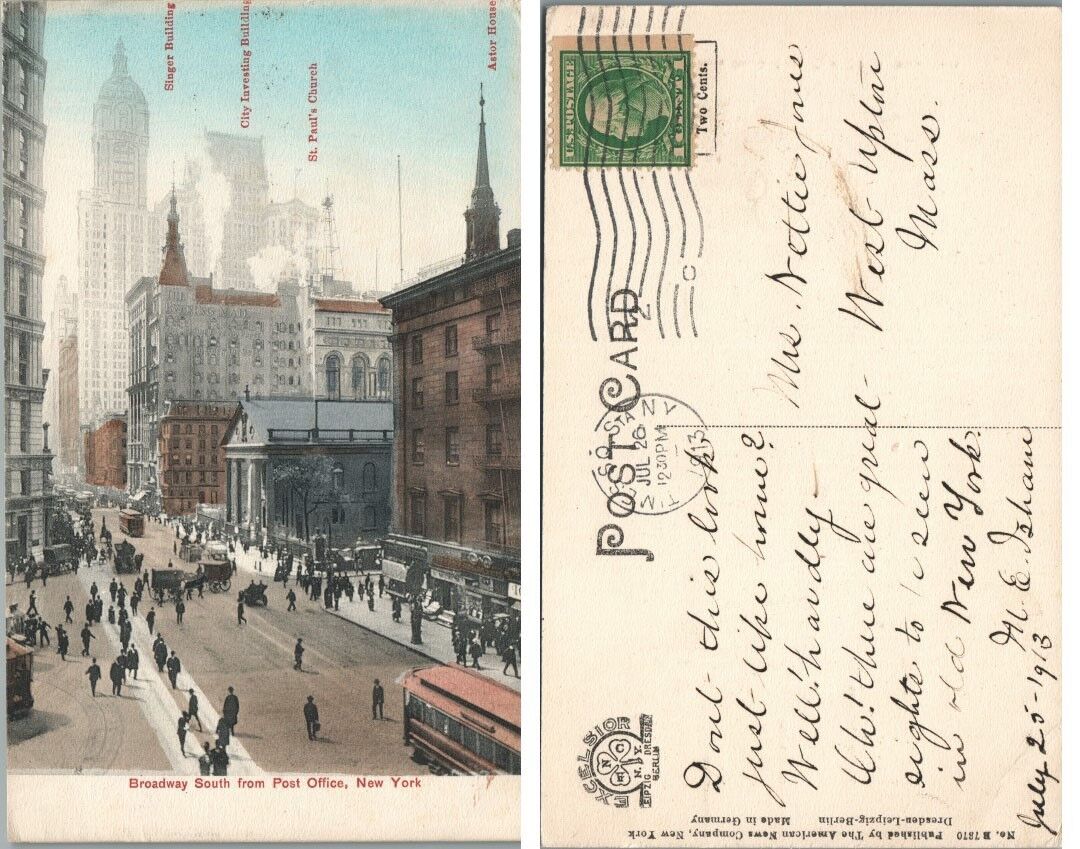 Singer Building
City Investing Building
St. Paul's Church
Astor House
Broadway South from Post Office, New York
U.S. POSTAGE
Two Cents.
POST CARD
N.Y.
JUL 26
12 30 PM
1913
Mrs. Nettie Jones
West Upton
Mass.
Dont this look
just like home?
Well! hardly-
Oh! there are great
sights to be seen
in old New York.
M. E. Isham
July 25-1913
EXCELSIOR
ANC
N.Y.
LEIPZIG DRESDEN
BERLIN
No. B 7870 Published by The American News Company, New York
Dresden-Leipzig-Berlin Made in Germany